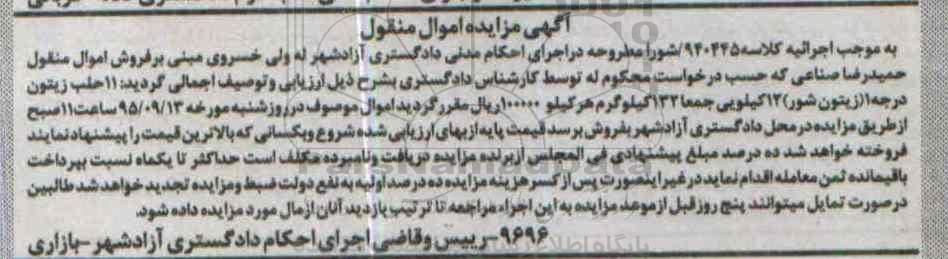 آگهی مزایده اموال منقول
به موجب اجرائیه کلاسه ۹۴۰۴۴۵/شورا مطروحه در اجرای احکام مدنی دادگستری آزادشهر له ولی خسروی مبنی بر فروش اموال منقول
حمیدرضا صناعی که حسب درخواست محکوم له توسط کارشناس دادگستری بشرح ذیل ارزیابی و توصیف اجمالی گردید: ۱۱حلب زیتون
درجه۱(زیتون شور)۱۲کیلویی جمعا ۱۳۲کیلوگرم هر کیلو ۱۰۰۰۰۰ریال مقرر گردید اموال موصوف در روز شنبه مورخه ۹۵/۰۹/۱۳ ساعت۱۱صبح
از طریق مزایده در محل دادگستری آزادشهر بفروش برسد قیمت پایه از بهای ارزیابی شده شروع و بکسانی که بالاترین قیمت را پیشنهاد نمایند
فروخته خواهد شد ده درصد مبلغ پیشنهادی فی المجلس از برنده مزایده دریافت و نامبرده مکلف است حداکثر تا یکماه نسبت بپرداخت
باقیمانده ثمن معامله اقدام نماید در غیر اینصورت پس از کسر هزینه مزایده ده درصد اولیه به نفع دولت ضبط و مزایده تجدید خواهد شد طالبین
در صورت تمایل میتوانند پنج روز قبل از موعد مزایده به این اجراء مراجعه تا ترتیب بازدید آنان از مال مورد مزایده داده شود.
۹۶۹۶-رییس و قاضی اجرای احکام دادگستری آزادشهر-بازاری
ParsNamadData